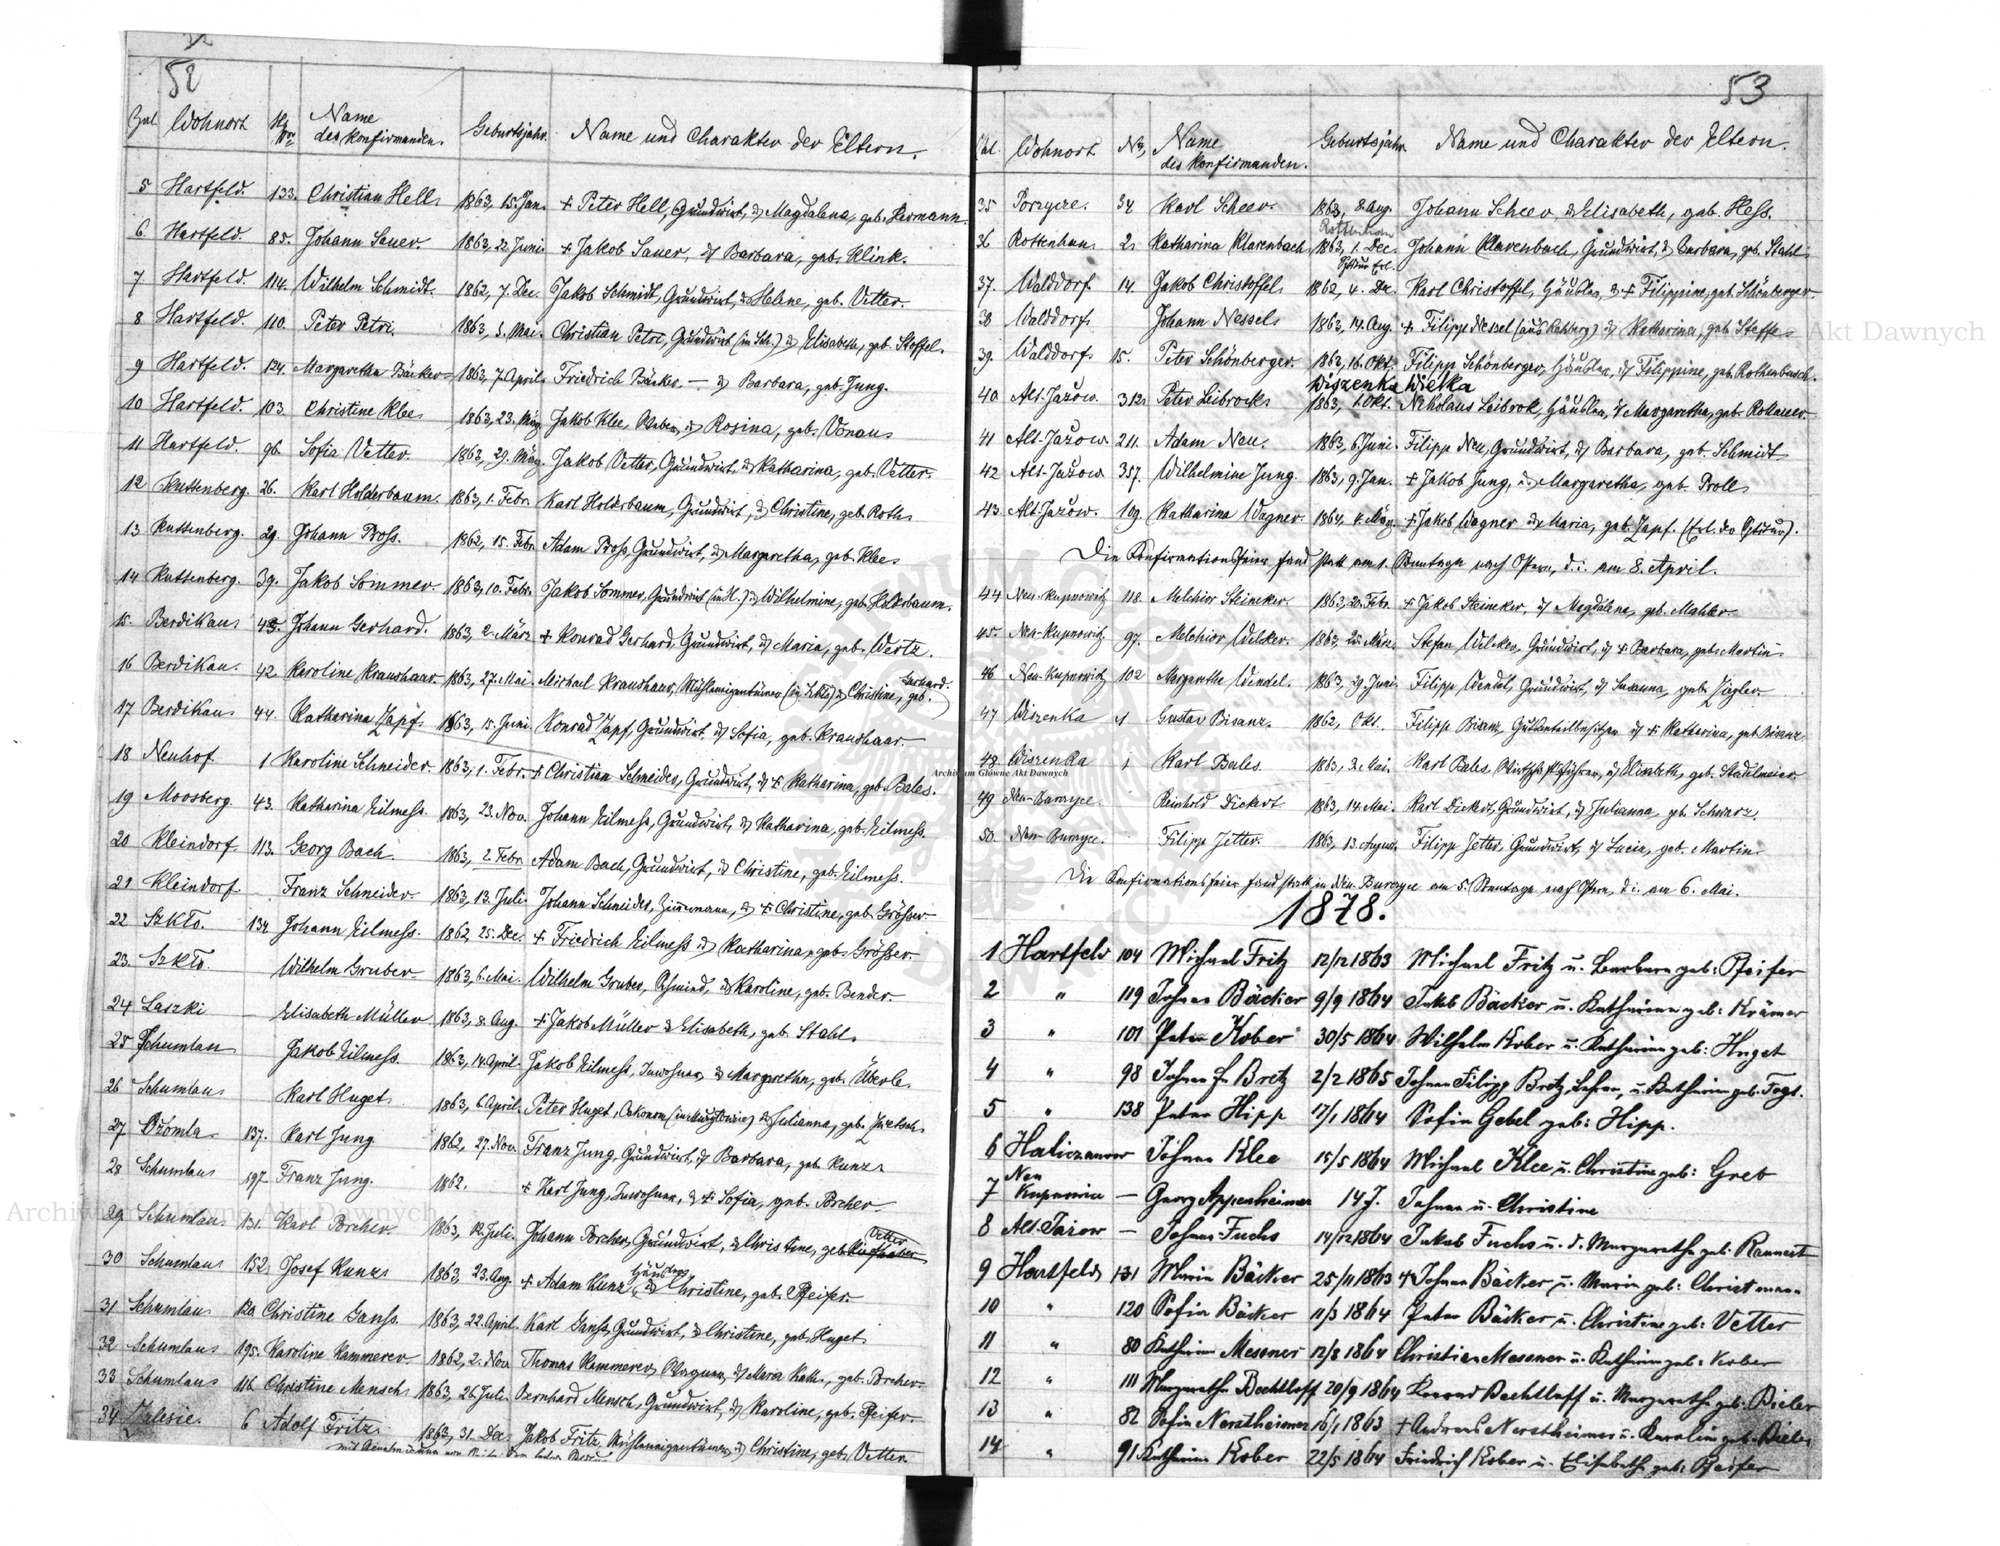 52
Zal Wohnort Hs Nro Name des Konfirmanden. Geburtsjahr. Name und Charakter der Eltern.
5 Hartfeld. 133. Christian Hell 1863, 15. Jan. + Peter Hell, Grundwirt, u. Magdalena, geb. Hermann
6. Hartfeld. 85. Johann Sauer 1863, 22. Juni + Jakob Sauer, u. Barbara, geb. Klink.
7 Hartfeld. 114. Wilhelm Schmidt. 1862, 7. Dec. Jakob Schmidt, Grundwirt, u. Helene, geb. Vetter.
8 Hartfeld. 110. Peter Petri 1863, 5. Mai. Christian Petri, Grundwirt (in Sch.) u. Elisabeth, geb. Stoffel.
9 Hartfeld. 124. Margaretha Bäcker 1863, 7. April Friedrich Bäcker. — u. Barbara, geb. Jung.
10 Hartfeld. 103. Christine Klee 1863, 23. März Jakob Klee, Weber, u. Rosina, geb. Vonau
11 Hartfeld. 96. Sofia Vetter. 1863, 29. März. Jakob Vetter, Grundwirt, u. Katharina, geb. Vetter.
12 Kuttenberg. 26. Karl Holderbaum. 1863, 1. Febr. Karl Holderbaum, Grundwirt, u. Christine, geb. Roth
13 Kuttenberg. 29. Johann Pross. 1862, 15. Febr. Adam Pross, Grundwirt, u. Margaretha, geb. Klee
14 Kuttenberg. 39. Jakob Sommer. 1863, 10. Febr. Jakob Sommer, Grundwirt (in H.) u. Wilhelmine, geb. Holderbaum.
15. Berdikau 43. Johann Gerhard. 1863, 2. März + Konrad Gerhard, Grundwirt, u. Maria, geb. Wertz.
16 Berdikau. 42. Karoline Kraushaar 1863, 27. Mai. Michael Kraushaar, Mühleneigentümer (in Szkło) u. Christine, geb. Gerhard.
17 Berdikau 44. Katharina Zapf. 1863, 15. Juni. Konrad Zapf, Grundwirt, u. Sofia, geb. Kraushaar.
18 Neuhof 1 Karoline Schneider. 1863, 1. Febr. + Christian Schneider, Grundwirt, u. + Katharina, geb. Bales.
19 Moosberg. 43. Katharina Eilmess. 1863, 23. Nov. Johann Eilmess, Grundwirt, u. Katharina, geb. Eilmess.
20 Kleindorf. 113. Georg Bach. 1863, 2. Febr. Adam Bach, Grundwirt, u. Christine, geb. Eilmess.
21 Kleindorf Franz Schneider. 1863, 13. Juli. Johann Schneider, Zimmermann, u. + Christine, geb. Grösser.
22 Szkło. 134 Johann Eilmess. 1862, 25. Dec. + Friedrich Eilmess u. Katharina, geb. Grösser.
23. Szkło. Wilhelm Gruber 1863, 6. Mai. Wilhelm Gruber, Schmied, u. Karoline, geb. Bender.
24 Laszki — Elisabeth Müller 1863, 8. Aug. + Jakob Müller u. Elisabeth, geb. Stahl.
25 Schumlau Jakob Eilmess. 1863, 14. April Jakob Eilmess, Inwohner, u. Margaretha, geb. Überle.
26 Schumlau Karl Huget 1863, 6. April. Peter Huget, Oekonom u. Julianna, geb.
27 137. Karl Jung 1862, 27. Nov. Franz Jung, Grundwirt, u. Barbara, geb. Kunz
28 Schumlau 197 Franz Jung. 1862. + Karl Jung, Inwohner, u. + Sofia, geb. Porcher
29. Schumlau 131. Karl Porcher. 1863, 12. Juli. Johann Porcher, Grundwirt, u. Christine, geb. Vetter
30 Schumlau 152. Josef Kunz 1863, 23. Aug. + Adam Kunz, Häusler, u. Christine, geb. Pfeifer.
31 Schumlau 120 Christine Ganss. 1863, 22. April. Karl Ganss, Grundwirt, u. Christine, geb. Huget
32 Schumlau 195. Karoline Kammerer 1862, 2. Nov. Thomas Kammerer, Wagner, u. Maria Kath., geb. Porcher
33 Schumlau 116. Christine Mensch 1863, 26. Juli. Bernhard Mensch, Grundwirt, u. Karoline, geb. Pfeifer.
34 Zalesie. 6 Adolf Fritz 1863, 31. Dec. Jakob Fritz, Mühleneigentümer, u. Christine, geb. Vetter
53
Zal. Wohnort Nro Name des Konfirmanden. Geburtsjahr. Name und Charakter der Eltern.
35 Porzycze. 34 Karl Scheer. 1863, 8. Aug. Johann Scheer u. Elisabeth, geb. Hess.
Rottenhan
36 Rottenhan 2. Katharina Klarenbach 1863, 1. Dec. Johann Klarenbach, Grundwirt, u. Barbara, geb. Stahl
37. Walddorf 14. Jakob Christoffel 1862, 4. Dec. Karl Christoffel, Häusler, u. + Filippine, geb. Schönberger.
38 Walddorf Johann Nessel 1863, 14. Aug. + Filipp Nessel (aus Rehberg) u. Katharina, geb. Steffe
39. Walddorf 15. Peter Schönberger. 1863, 16. Okt. Filipp Schönberger, Häusler, u. Filippine, geb. Rothenbusch.
Wiszenka Wielka
40 Alt-Jazow. 312 Peter Leibrock 1863, 1. Okt. Nikolaus Leibrok, Häusler, u. Margaretha, geb. Kollauer.
41 Alt-Jazow. 211. Adam Neu. 1863, 6. Juni. Filipp Neu, Grundwirt, u. Barbara, geb. Schmidt
42 Alt-Jazow 357. Wilhelmine Jung. 1863, 9. Jan. + Jakob Jung, u. Margaretha, geb. Proll
43. Alt-Jazow. 109 Katharina Wagner. 1864, 4. März. + Jakob Wagner u. Maria, geb. Zapf.
Die Konfirmationsfeier fand statt am 1. Sonntage nach Ostern, d. i. am 8. April.
44 Neu-Kupnowitz 118. Melchior Steineker. 1863, 20. Febr. + Jakob Steineker, u. Magdalena, geb. Mahler
45. Neu-Kupnowitz 97. Melchior Welcker. 1863, 25. März. Stefan Welcker, Grundwirt, u. + Barbara, geb. Martin
46 Neu-Kupnowitz 102 Margaretha Wendel. 1863, 29. Juni. Filipp Wendel, Grundwirt, u. Susanna, geb. Ziegler
47 Wiszenka Gustav Bisanz. 1862, Okt. Filipp Bisanz, Gutsanteilbesitzer u. + Katharina, geb. Bisanz.
48 Wiszenka Karl Bales. 1863, 2. Mai. Karl Bales, Wirtschaftsführer, u. Elisabeth, geb. Stadelmeier
49 Neu-Burczyce. Reinhold Dickert 1863, 14. Mai. Karl Dickert, Grundwirt, u. Julianna, geb. Schwarz.
50. Neu-Burczyce. Filipp Jetter. 1863, 13. August. Filipp Jetter, Grundwirt, u. Lucia, geb. Martin
Die Konfirmationsfeier fand statt in Neu-Burczyce am 5. Sonntage nach Ostern, d. i. am 6. Mai.
1878.
1 Hartfeld 104 Michael Fritz 12/12 1863 Michael Fritz u. Barbara geb: Pfeifer
2 " 119 Johann Bäcker 9/9 1864 Jakob Bäcker u. Katharina geb: Krämer
3 " 101 Peter Kober 30/5 1864 Wilhelm Kober u. Katharina geb: Huget
4 " 98 Johann F. Bretz 2/2 1865 Johann Filipp Bretz, Lehrer, u. Katharina geb: Vogt.
5 " 138 Peter Hipp 17/1 1864 Sofia Gebel geb: Hipp.
6 Haliczanow Johann Klee 15/5 1864 Michael Klee u. Christine geb: Greb
7 Neu Kupnowice — Georg Appenheimer 14 J. Johann u. Christine
8 Alt-Jazow — Johann Fuchs 14/12 1864 Jakob Fuchs u. d. Margaretha geb: Rannert
9 Hartfeld 131 Maria Bäcker 25/11 1863 + Johann Bäcker u. Maria geb: Christmann
10 " 120 Sofia Bäcker 11/3 1864 Peter Bäcker u. Christine geb: Vetter
11 " 80 Katharina Messner 12/8 1864 Christian Messner u. Katharina geb: Kober
12 " 111 Margaretha Bechtloff 20/9 1864 Konrad Bechtloff u. Margaretha geb: Bieler
13 " 82 Sofia Nerstheimer 16/1 1863 + Andreas Nerstheimer u. Karolina geb: Bieler
14 " 91 Katharina Kober 22/5 1864 Friedrich Kober u. Elisabeth geb: Pfeifer
Archiwum Główne Akt Dawnych